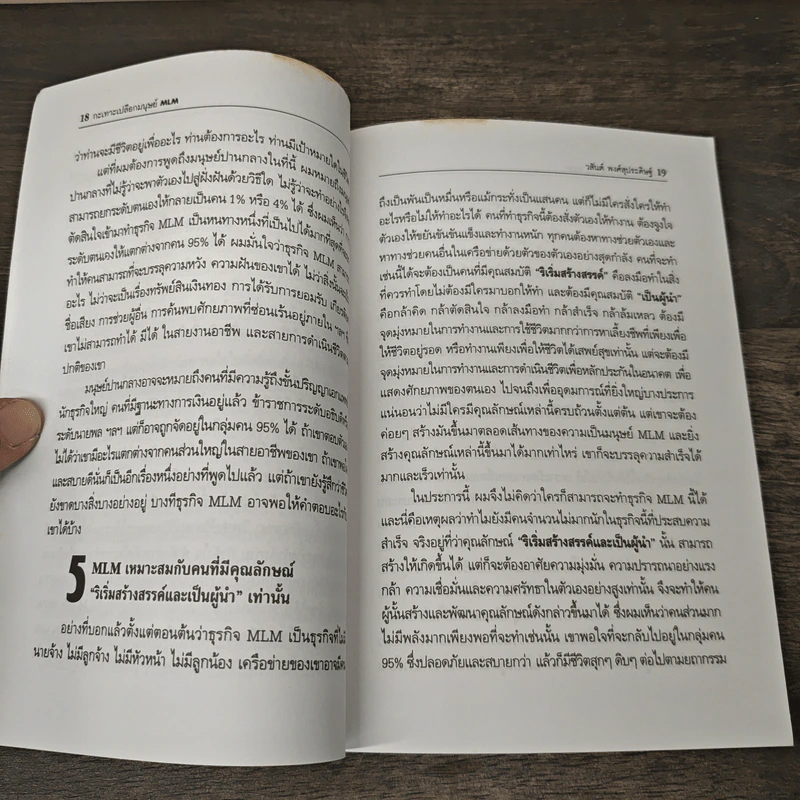 18 กะเทาะเปลือกมนุษย์ MLM
ว่าท่านจะมีชีวิตอยู่เพื่ออะไร ท่านต้องการอะไร ท่านมีเป้าหมายใดในชีวิต
แต่ที่ผมต้องการพูดถึงมนุษย์ปานกลางในที่นี้ ผมหมายถึงมนุษย์
ปานกลางที่ไม่รู้ว่าจะพาตัวเองไปสู่ฝั่งฝันด้วยวิธีใด ไม่รู้ว่าจะทำอย่างไร
สามารถยกระดับตนเองให้กลายเป็นคน 1% หรือ 4% ได้ ซึ่งผมเห็นว่า
ตัดสินใจเข้ามาทำธุรกิจ MLM เป็นหนทางหนึ่งที่เป็นไปได้มากที่สุด
ระดับตนเองให้แตกต่างจากคน 95% ได้ ผมมั่นใจว่าธุรกิจ MLM
ทำให้คนสามารถที่จะบรรลุความหวัง ความฝันของเขาได้ ไม่ว่าสิ่งนั้น
อะไร ไม่ว่าจะเป็นเรื่องทรัพย์สินเงินทอง การได้รับการยอมรับ
ชื่อเสียง การช่วยผู้อื่น การค้นพบศักยภาพที่ซ่อนเร้นอยู่ภายใน ฯลฯ
เขาไม่สามารถทำได้ มีได้ ในสายงานอาชีพ และสายการดำเนินชีวิต
ปกติของเขา
มนุษย์ปานกลางอาจจะหมายถึงคนที่มีความรู้ถึงขั้นปริญญาเอก
นักธุรกิจใหญ่ คนที่มีฐานะทางการเงินอยู่แล้ว ข้าราชการระดับอธิบดี
ระดับนายพล ฯลฯ แต่ก็อาจถูกจัดอยู่ในกลุ่มคน 95% ได้ ถ้าเขาตอบ
ไม่ได้ว่าเขามีอะไรแตกต่างจากคนส่วนใหญ่ในสายอาชีพของเขา ถ้าเขา
และสบายดีนั่นก็เป็นอีกเรื่องหนึ่งอย่างที่พูดไปแล้ว แต่ถ้าเขายังรู้สึกว่า
ยังขาดบางสิ่งบางอย่างอยู่ บางทีธุรกิจ MLM อาจพอให้คำตอบอะไร
เขาได้บ้าง
5 MLM เหมาะสมกับคนที่มีคุณลักษณ์
“ริเริ่มสร้างสรรค์และเป็นผู้นำ” เท่านั้น
อย่างที่บอกแล้วตั้งแต่ตอนต้นว่าธุรกิจ MLM เป็นธุรกิจที่ไม่
นายจ้าง ไม่มีลูกจ้าง ไม่มีหัวหน้า ไม่มีลูกน้อง เครือข่ายของเขาอาจมี
วสันต์ พงศ์สุประดิษฐ์ 19
ถึงเป็นพันเป็นหมื่นหรือแม้กระทั่งเป็นแสนคน แต่ก็ไม่มีใครสั่งใครให้ทำ
อะไรหรือไม่ให้ทำอะไรได้ คนที่ทำธุรกิจนี้ต้องสั่งตัวเองให้ทำงาน ต้องจูงใจ
ตัวเองให้ขยันขันแข็งและทำงานหนัก ทุกคนต้องหาทางช่วยตัวเองและ
หาทางช่วยคนอื่นในเครือข่ายด้วยตัวของตัวเองอย่างสุดกำลัง คนที่จะทำ
เช่นนี้ได้จะต้องเป็นคนที่มีคุณสมบัติ “ริเริ่มสร้างสรรค์” คือลงมือทำในสิ่ง
ที่ควรทำโดยไม่ต้องมีใครมาบอกให้ทำ และต้องมีคุณสมบัติ “เป็นผู้นำ”
คือกล้าคิด กล้าตัดสินใจ กล้าลงมือทำ กล้าสำเร็จ กล้าล้มเหลว ต้องมี
จุดมุ่งหมายในการทำงานและการใช้ชีวิตมากกว่าการหาเลี้ยงชีพที่เพียงเพื่อ
ให้ชีวิตอยู่รอด หรือทำงานเพียงเพื่อให้ชีวิตได้เสพย์สุขเท่านั้น แต่จะต้องมี
จุดมุ่งหมายในการทำงานและการดำเนินชีวิตเพื่อหลักประกันในอนาคต เพื่อ
แสดงศักยภาพของตนเอง ไปจนถึงเพื่ออุดมการณ์ที่ยิ่งใหญ่บางประการ
แน่นอนว่าไม่มีใครมีคุณลักษณ์เหล่านี้ครบถ้วนตั้งแต่ต้น แต่เขาจะต้อง
ค่อยๆ สร้างมันขึ้นมาตลอดเส้นทางของความเป็นมนุษย์ MLM และยิ่ง
สร้างคุณลักษณ์เหล่านี้ขึ้นมาได้มากเท่าไหร่ เขาก็จะบรรลุความสำเร็จได้
มากและเร็วเท่านั้น
ในประการนี้ ผมจึงไม่คิดว่าใครก็สามารถจะทำธุรกิจ MLM นี้ได้
และนี่คือเหตุผลว่าทำไมยังมีคนจำนวนไม่มากนักในธุรกิจนี้ที่ประสบความ
สำเร็จ จริงอยู่ที่ว่าคุณลักษณ์ “ริเริ่มสร้างสรรค์และเป็นผู้นำ” นั้น สามารถ
สร้างให้เกิดขึ้นได้ แต่ก็จะต้องอาศัยความมุ่งมั่น ความปรารถนาอย่างแรง
กล้า ความเชื่อมั่นและความศรัทธาในตัวเองอย่างสูงเท่านั้น จึงจะทำให้คน
ผู้นั้นสร้างและพัฒนาคุณลักษณ์ดังกล่าวขึ้นมาได้ ซึ่งผมเห็นว่าคนส่วนมาก
ไม่มีพลังมากเพียงพอที่จะทำเช่นนั้น เขาพอใจที่จะกลับไปอยู่ในกลุ่มคน
95% ซึ่งปลอดภัยและสบายกว่า แล้วก็มีชีวิตสุกๆ ดิบๆ ต่อไปตามยถากรรม